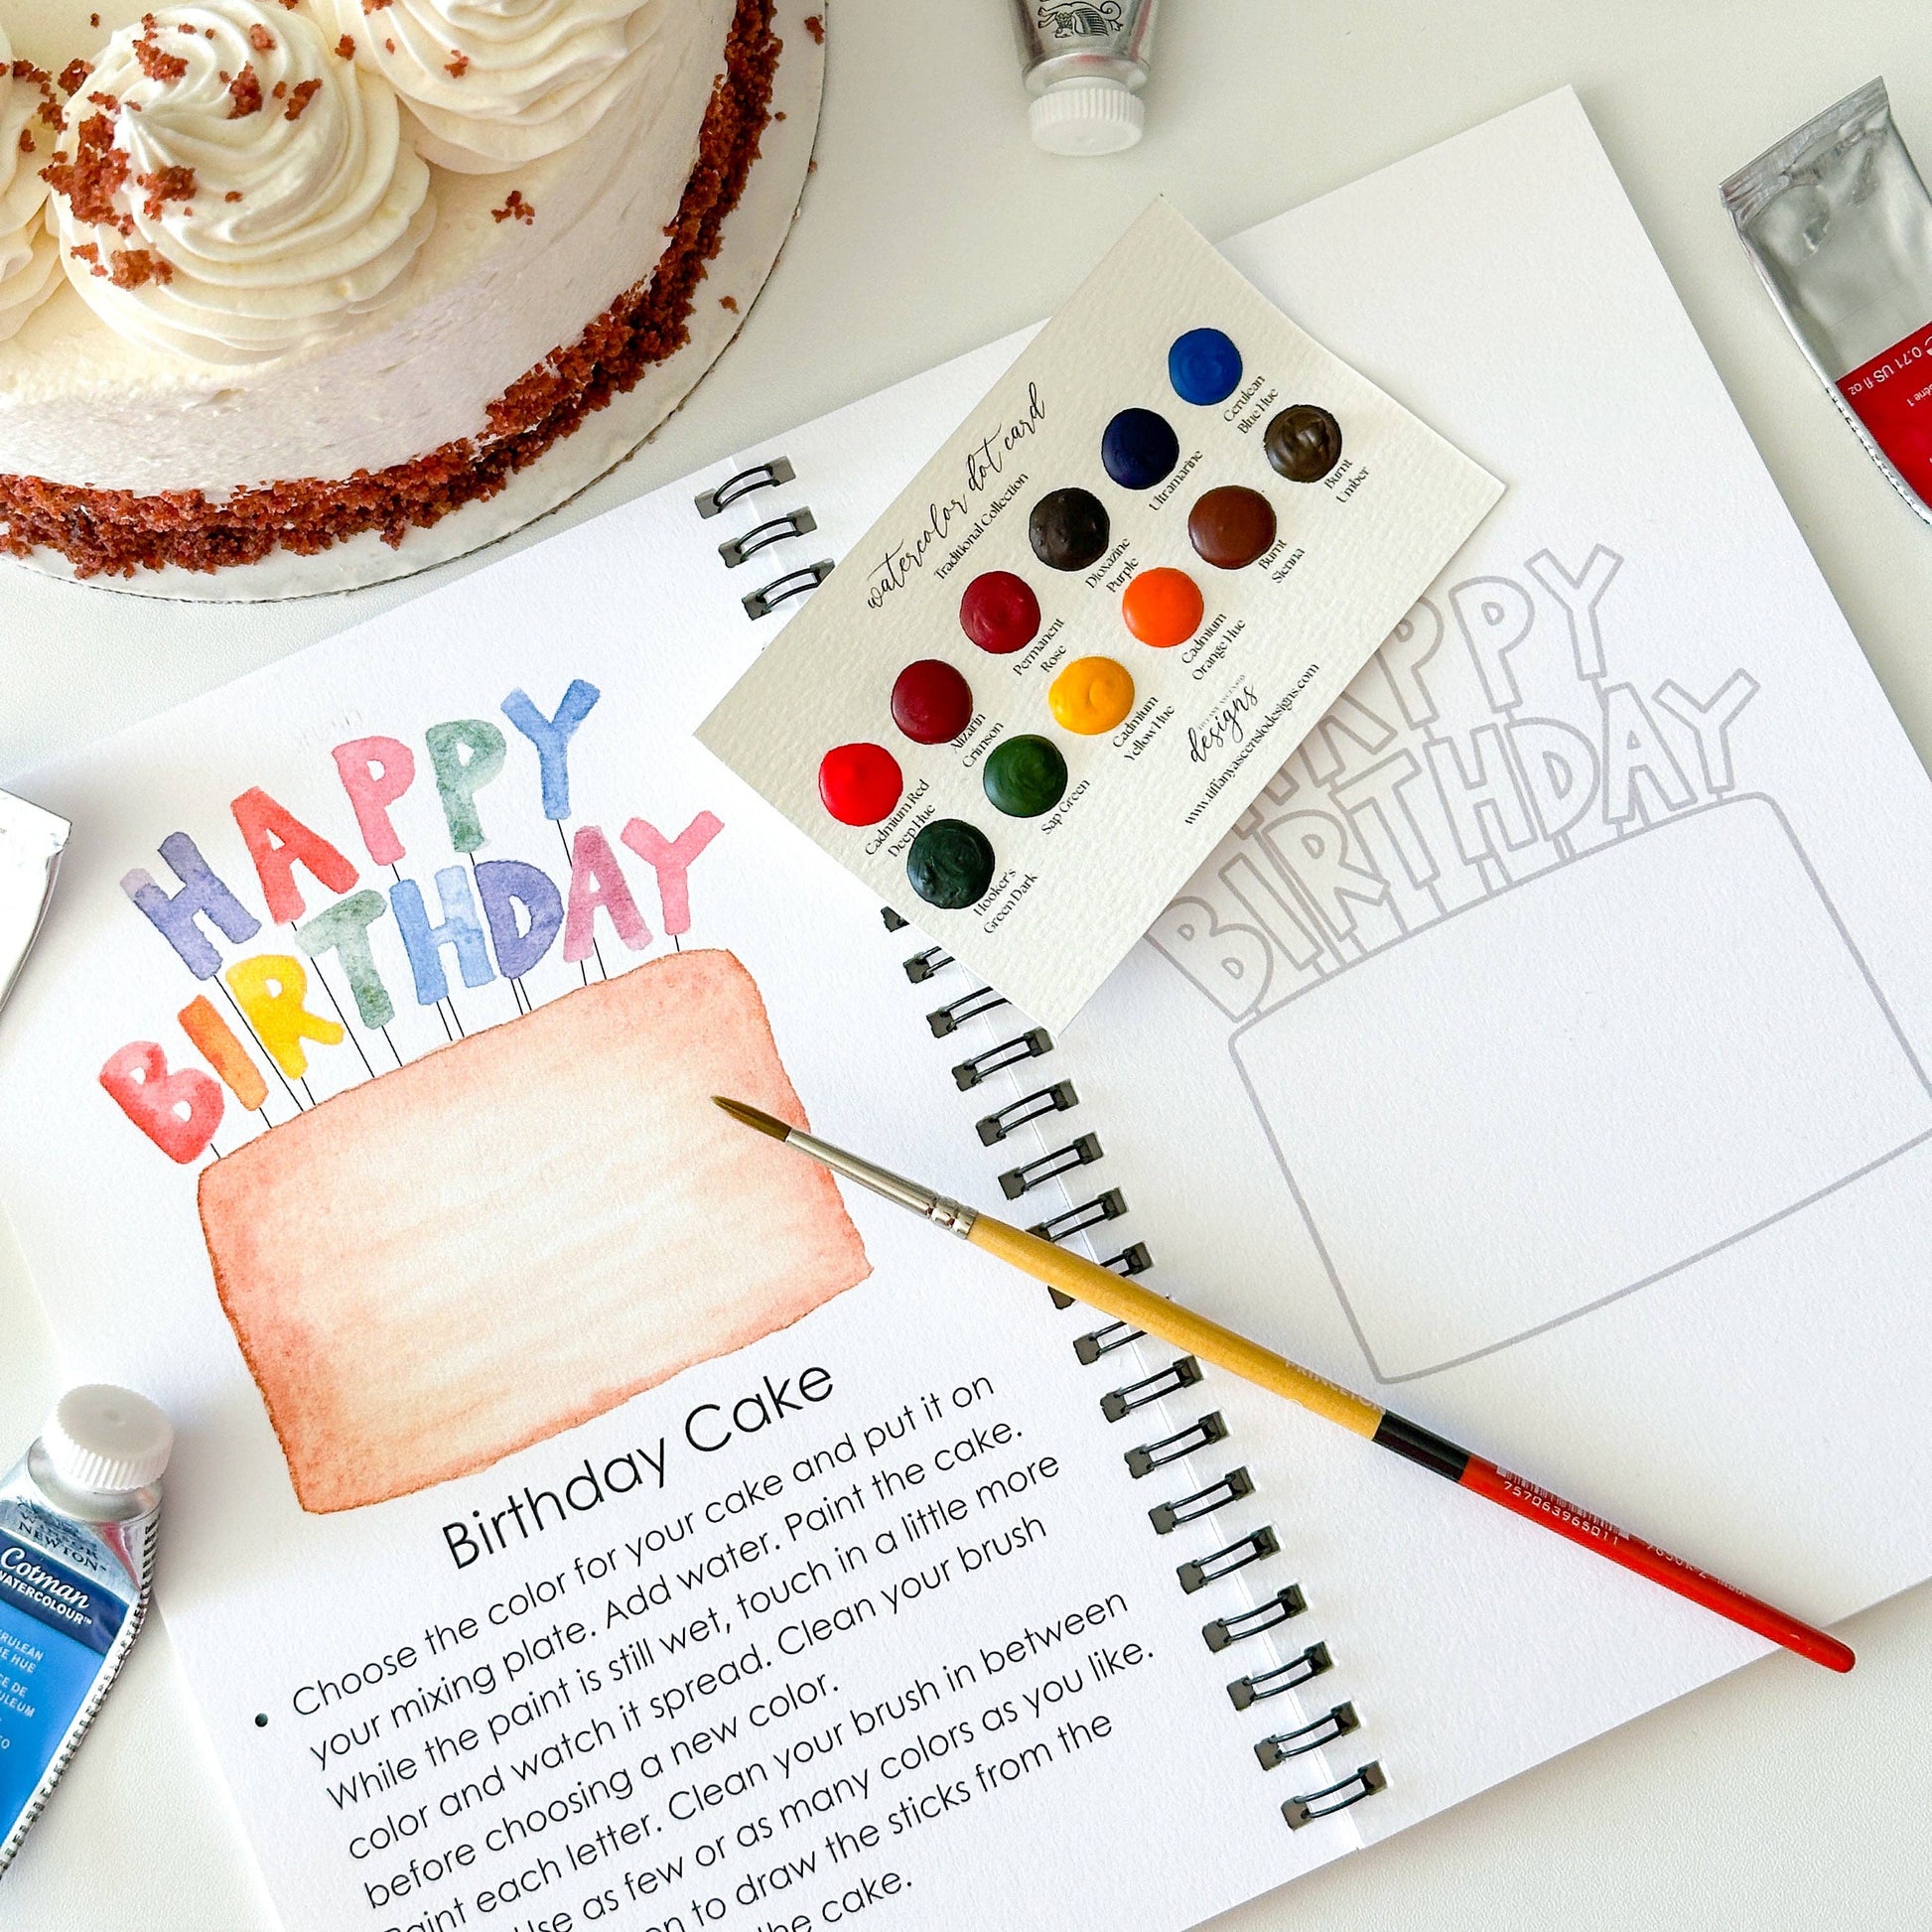 HAPPY
BIRTHDAY
Birthday Cake
• Choose the color for your cake and put it on
your mixing plate. Add water. Paint the cake.
While the paint is still wet, touch in a little more
color and watch it spread. Clean your brush
before choosing a new color.
Paint each letter. Clean your brush in between
Use as few or as many colors as you like.
to draw the sticks from the
the cake.
watercolor dot card
Traditional Collection
Cerulean
Blue Hue
Ultramarine
Dioxazine
Purple
Permanent
Rose
Alizarin
Crimson
Cadmium Red
Deep Hue
Burnt
Umber
Burnt
Sienna
Cadmium
Orange Hue
Cadmium
Yellow Hue
Sap Green
Hooker's
Green Dark
designs
www.tiffanyascensiodesigns.com
PPY
BIRTHDAY
PRINCETON
757063965011
WINSOR
NEWTON
Cotman
WATERCOLOUR™
0.71 US fl oz